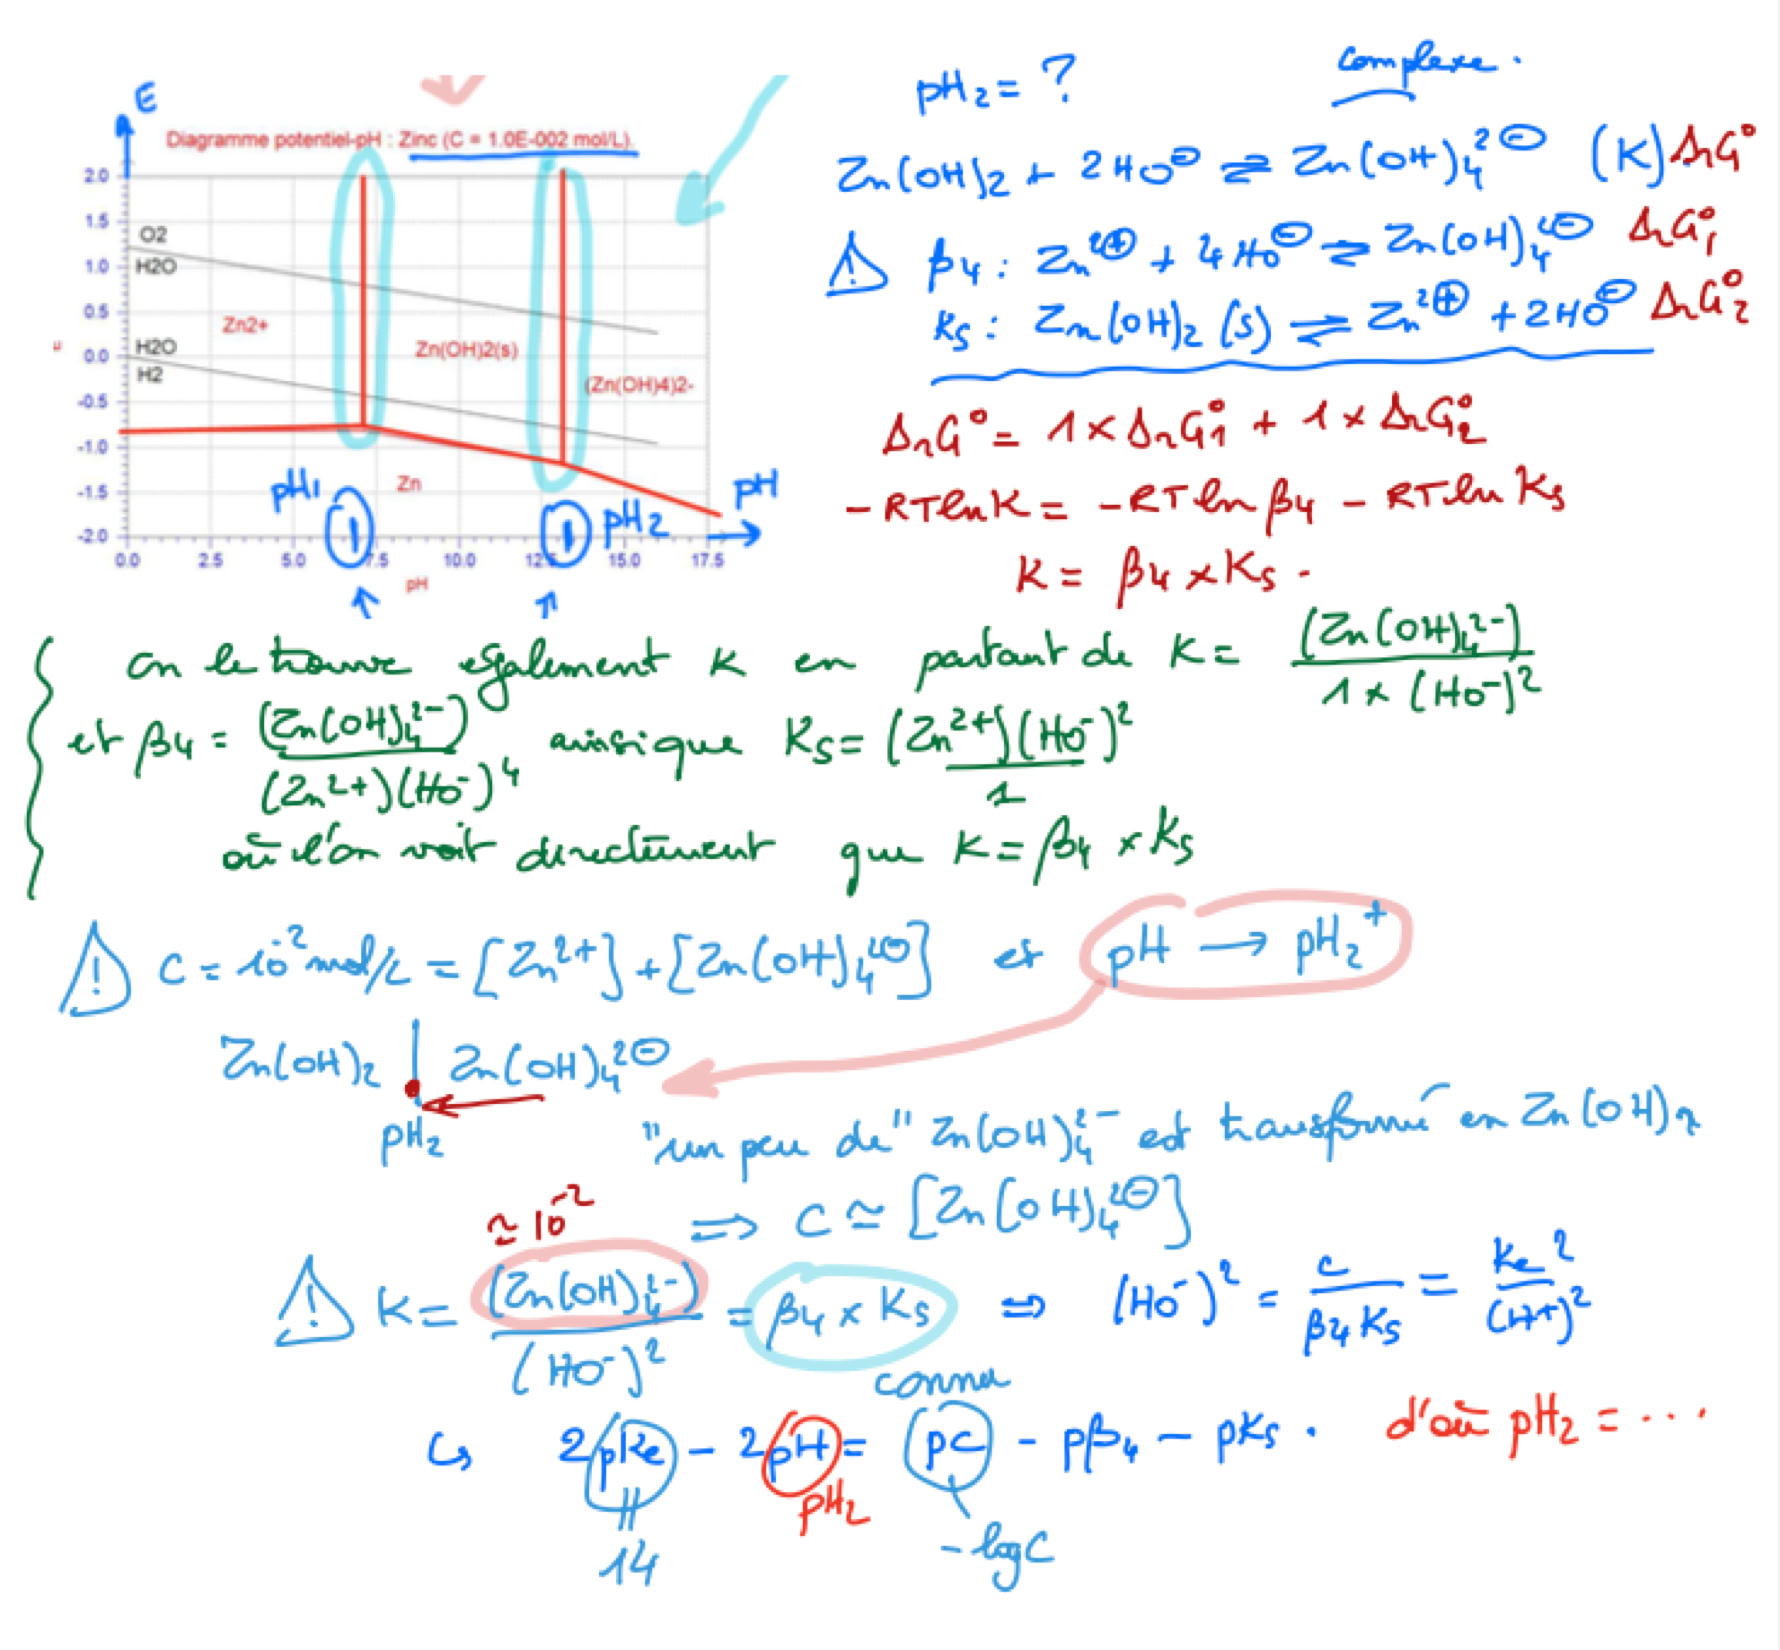 E
Diagramme potentiel-pH : Zinc (C = 1.0E-002 mol/L).
2.0
1.5
1.0
0.5
0.0
-0.5
-1.0
-1.5
-2.0
O2
H2O
H2O
H2
Zn2+
Zn(OH)2(s)
(Zn(OH)4)2-
Zn
pH₁
pH₂
pH
0.0 2.5 5.0 7.5 10.0 12.5 15.0 17.5
pH
pH₂ = ?
complexe.
Zn(OH)₂ + 2HO⊖ ⇌ Zn(OH)₄²⊖ (K) ΔrG°
⚠ β₄ : Zn²⊕ + 4HO⊖ ⇌ Zn(OH)₄²⊖ ΔrG₁°
Ks : Zn(OH)₂ (s) ⇌ Zn²⊕ + 2HO⊖ ΔrG₂°
ΔrG° = 1 × ΔrG₁° + 1 × ΔrG₂°
- RT ln K = - RT ln β₄ - RT ln Ks
K = β₄ × Ks.
on le trouve également K en partant de K = (Zn(OH)₄²⁻) / 1 × (HO⁻)²
et β₄ = (Zn(OH)₄²⁻) / (Zn²⁺)(HO⁻)⁴ ainsi que Ks = (Zn²⁺)(HO⁻)² / 1
où l'on voit directement que K = β₄ × Ks
⚠ C = 10⁻² mol/L = [Zn²⁺] + [Zn(OH)₄²⊖] et pH → pH₂⁺
Zn(OH)₂ | Zn(OH)₄²⊖
pH₂
"un peu de" Zn(OH)₄²⁻ est transformé en Zn(OH)₂
≃ 10⁻² ⇒ C ≃ [Zn(OH)₄²⊖]
⚠ K = (Zn(OH)₄²⁻) / (HO⁻)² = β₄ × Ks ⇒ (HO⁻)² = c / β₄Ks = Ke² / (H⁺)²
connu
↳ 2pKe - 2pH = pC - pβ₄ - pKs. d'où pH₂ = ...
pH₂
14
- log C